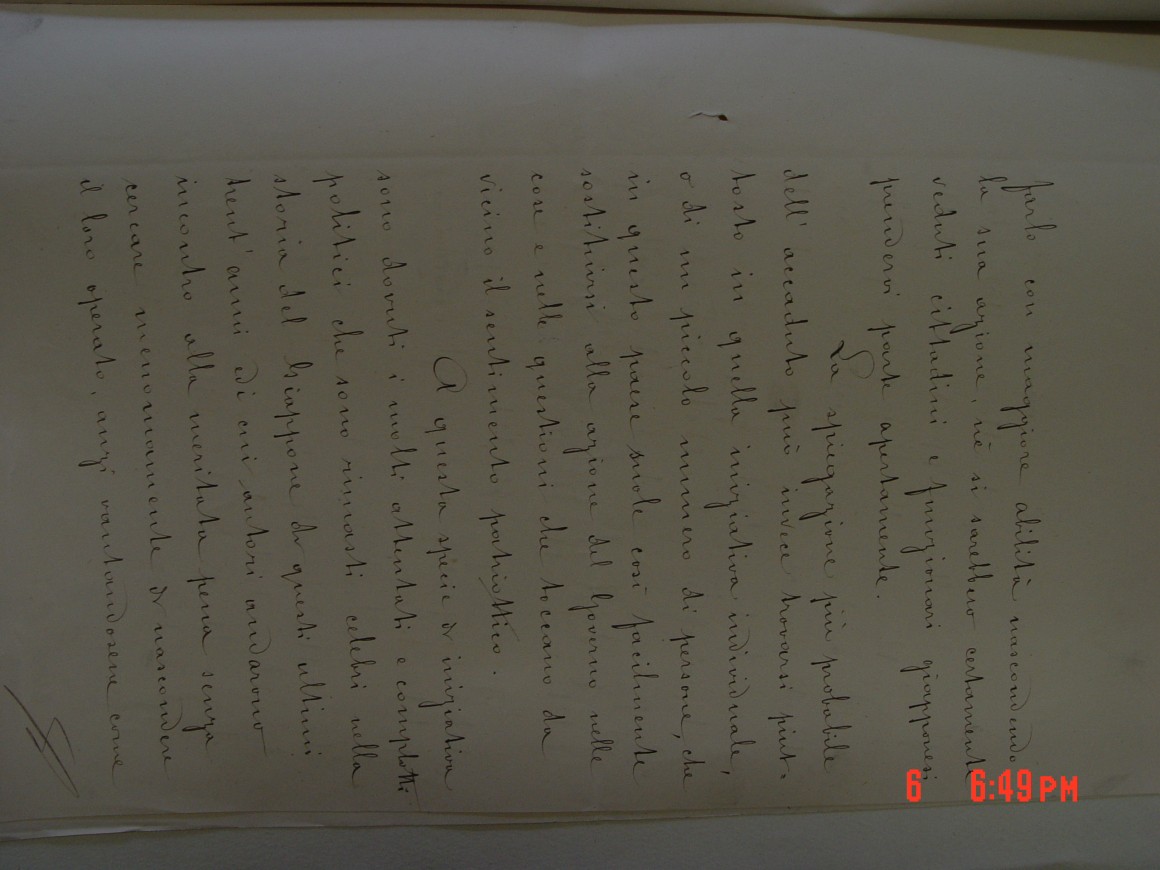 farlo con maggiore abilità nascondendo
la sua azione, nè si sarebbero certamente
veduti cittadini e funzionari giapponesi
prendervi parte apertamente.
La spiegazione più probabile
dell'accaduto può invece trovarsi piut-
tosto in quella iniziativa individuale,
o di un piccolo numero di persone, che
in questo paese suole così facilmente
sostituirsi alla azione del Governo nelle
cose e nelle questioni che toccano da
vicino il sentimento patriottico.
A questa specie di iniziativa
sono dovuti i molti attentati e complotti
politici che sono rimasti celebri nella
storia del Giappone di questi ultimi
trent'anni ed i cui autori andarono
incontro alla meritata pena senza
cercare menomamente di nascondere
il loro operato, anzi vantandosene come
6 6:49 PM